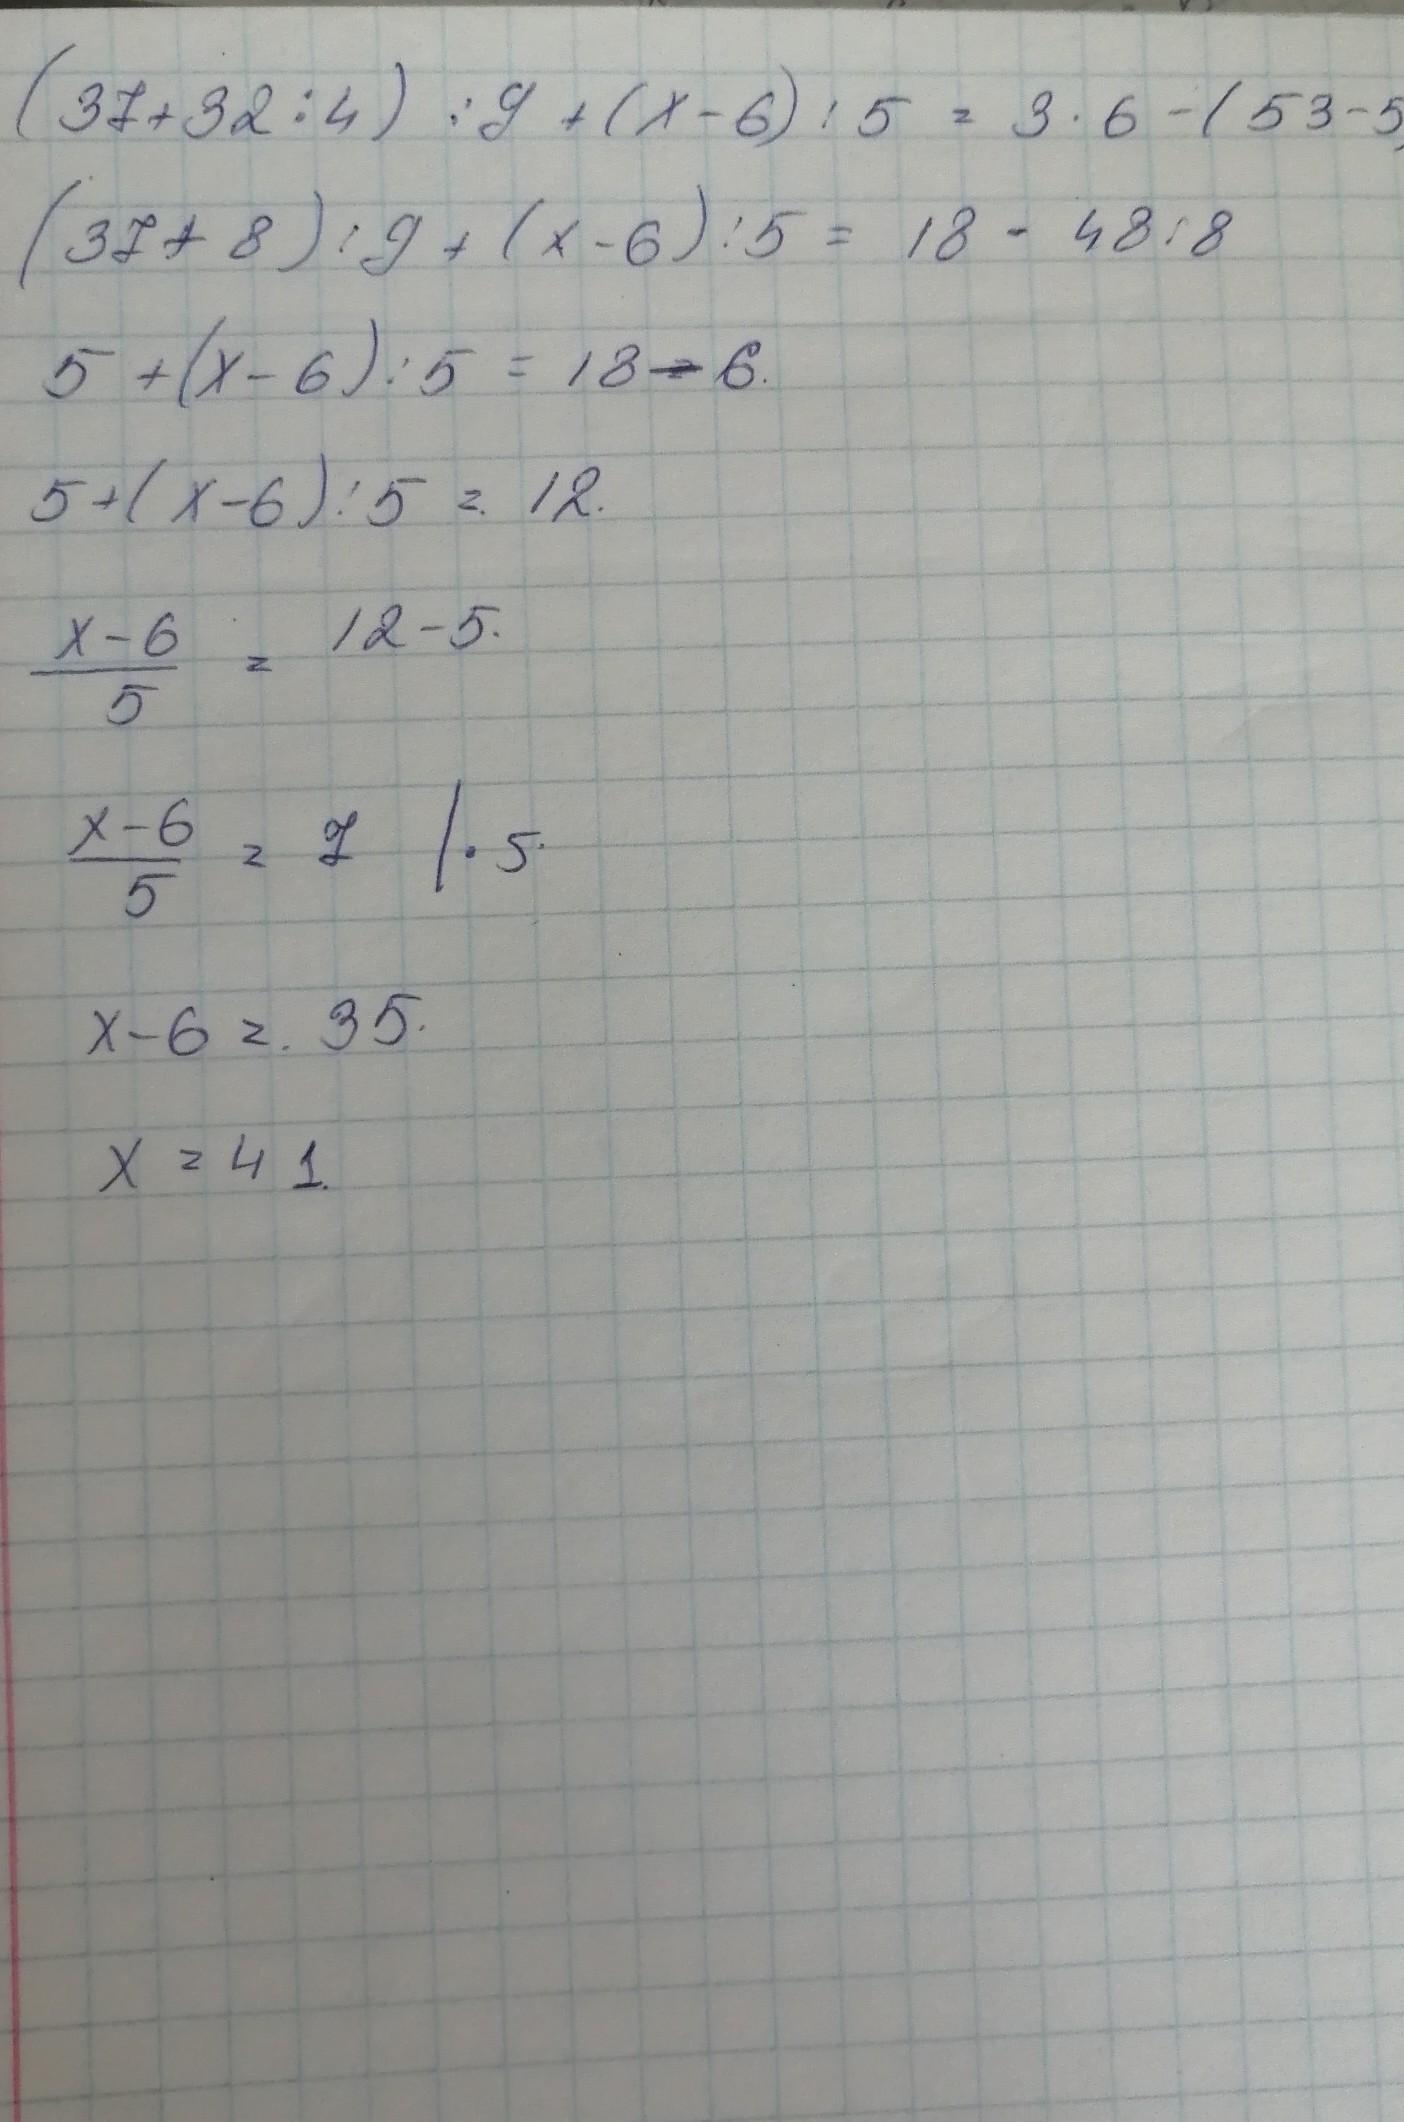 (37+32:4) :9 + (x-6):5 = 3·6-(53-5)
(37+8):9+(x-6):5= 18- 48:8
5+(x-6):5 = 18-6.
5+(x-6):5 = 12.
x-6/5 = 12-5.
x-6/5 = 7 |·5.
x-6 = 35.
x = 41.